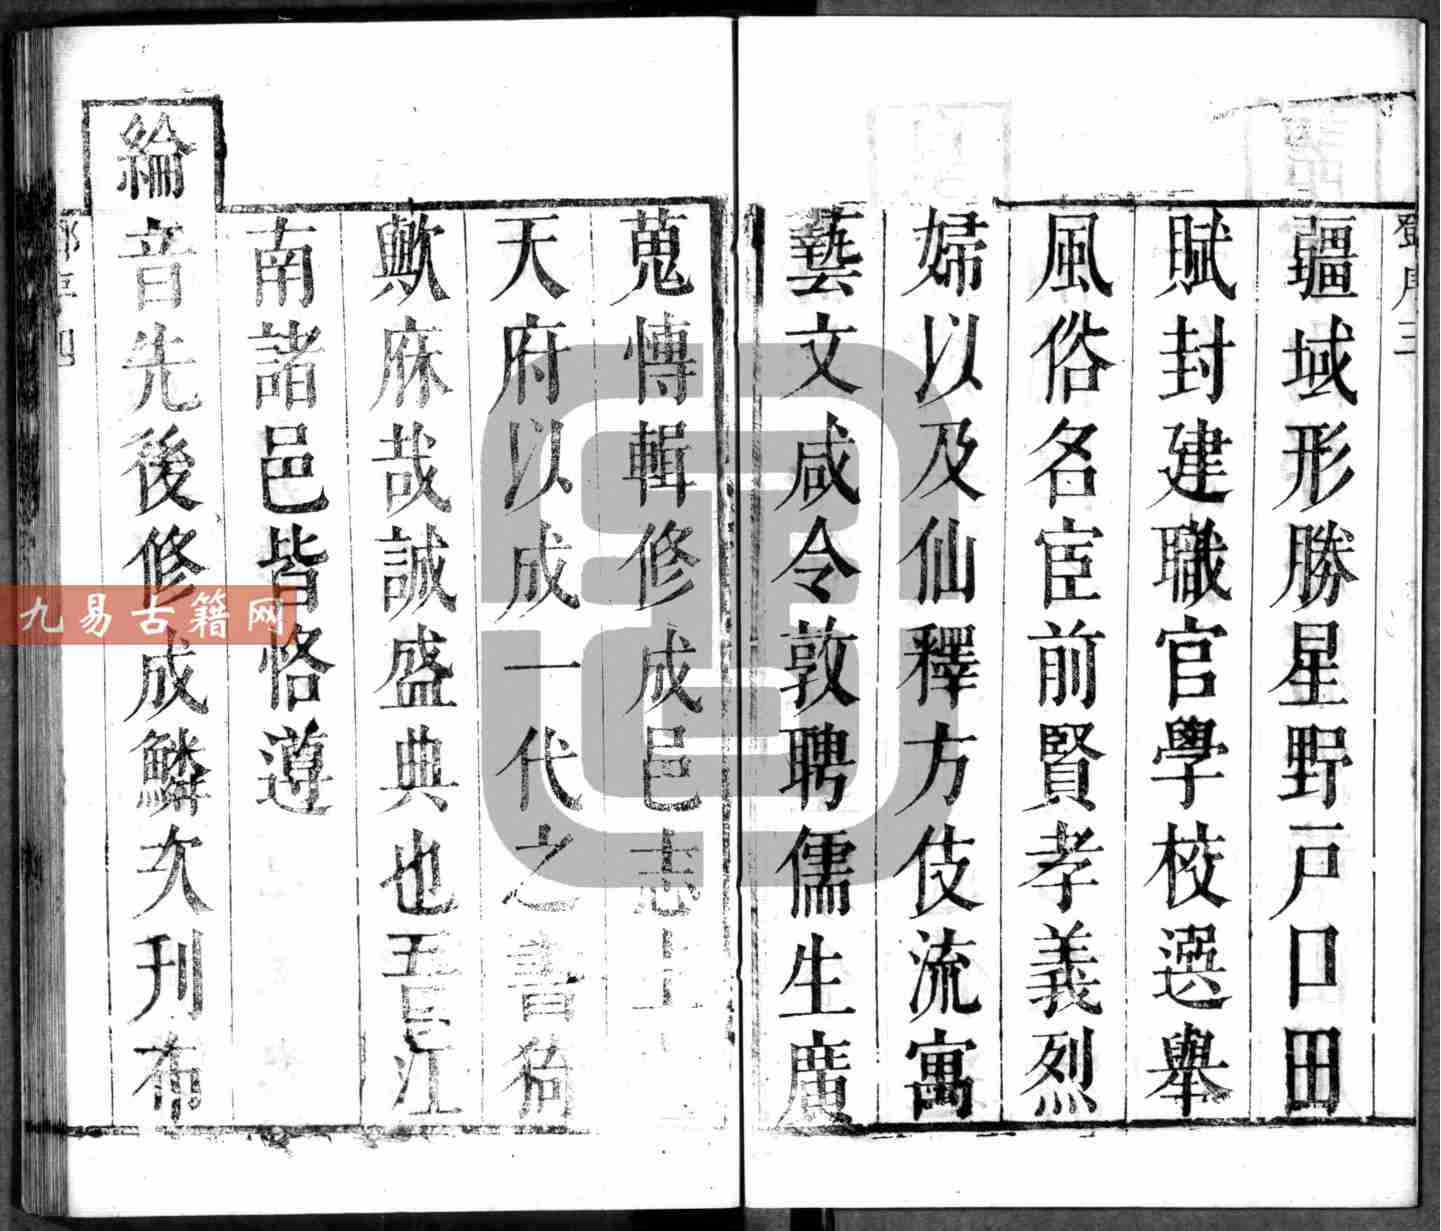 疆域形勝星野戶口田
賦封建職官學校選舉
風俗名宦前賢孝義烈
婦以及仙釋方伎流寓
藝文咸令敦聘儒生廣
蒐愽輯修成邑志上
天府以成一代之書猗
歟庥哉誠盛典也吾江
南諸邑皆恪遵
綸音先後修成鱗次刊布
九易古籍网